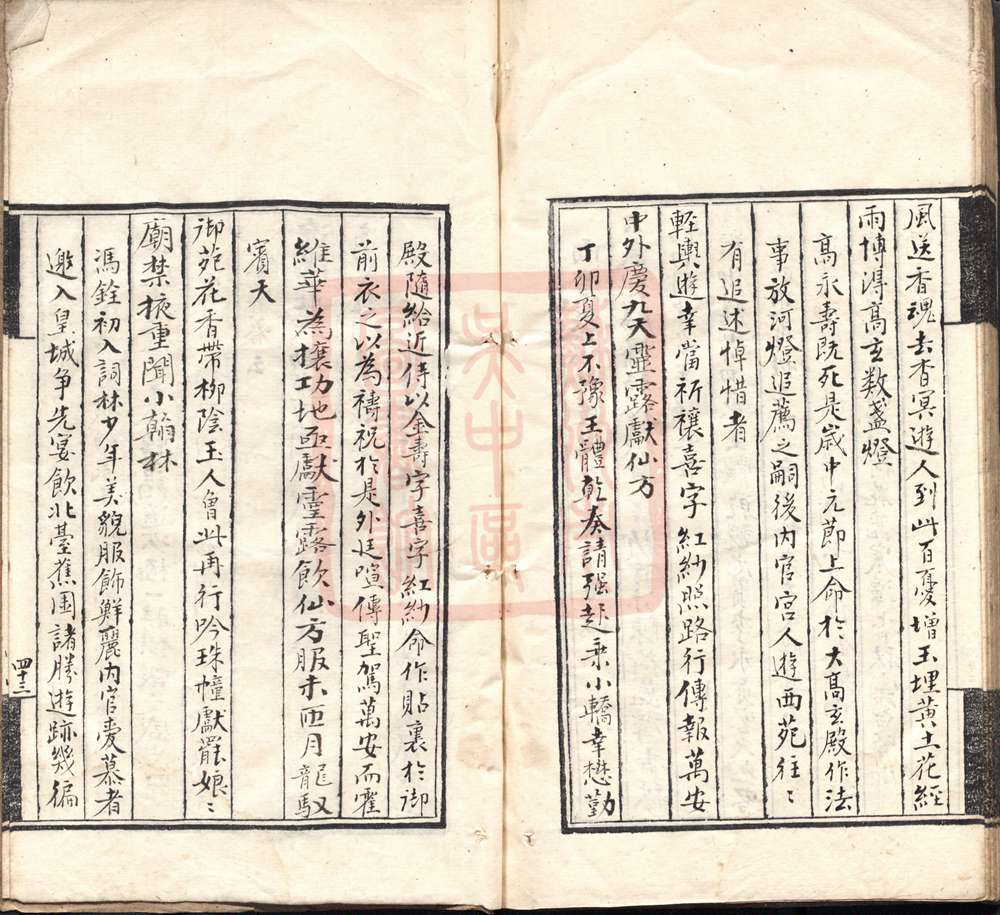 風送香魂去杳冥遊人到此百憂增玉埋黄土花經
雨博得髙玄数盞燈
髙永壽既死是歲中元節上命於大髙玄殿作法
事放河燈追薦之嗣後内官宮人遊西苑往〻
有追述悼惜者
輕輿遊幸當祈禳喜字紅紗照路行傳報萬安
中外慶九天靈露獻仙方
丁卯夏上不豫王體乾奏請强起乗小轎幸懋勤
殿隨給近侍以金壽字喜字紅紗命作貼裏於御
前衣之以為禱祝於是外廷喧傳聖駕萬安而霍
維華為攘功地亟獻靈露飲仙方服未匝月龍馭
賓天
御苑花香帶柳陰玉人曾此再行吟珠幢獻罷娘〻
廟禁掖重聞小翰林
馮銓初入詞林少年美貌服飾鮮麗内官愛慕者
邀入皇城争先宴飲北臺蕉園諸勝遊跡幾徧
四十三